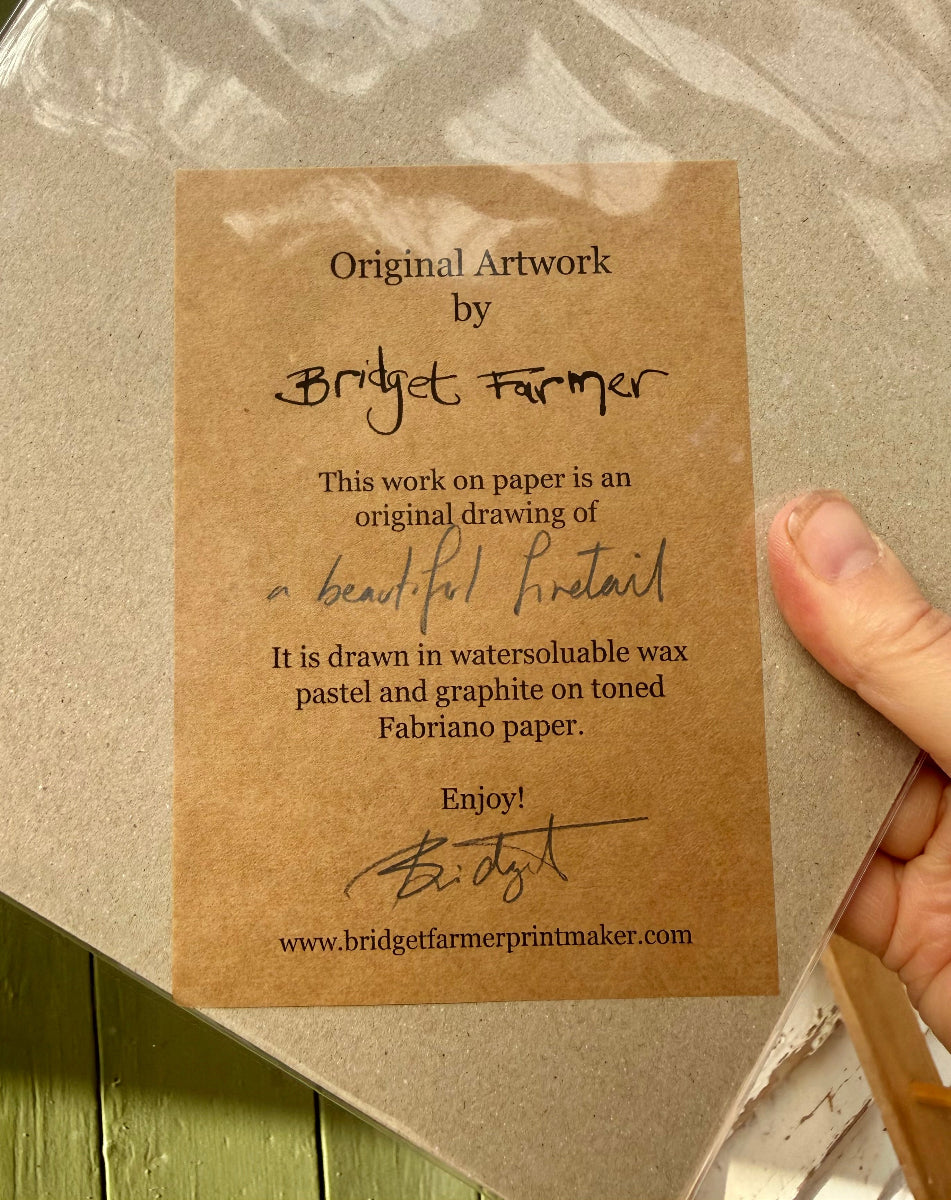 Original Artwork
by
Bridget Farmer
This work on paper is an
original drawing of
a beautiful firetail
It is drawn in watersoluable wax
pastel and graphite on toned
Fabriano paper.
Enjoy!
Bridget
www.bridgetfarmerprintmaker.com